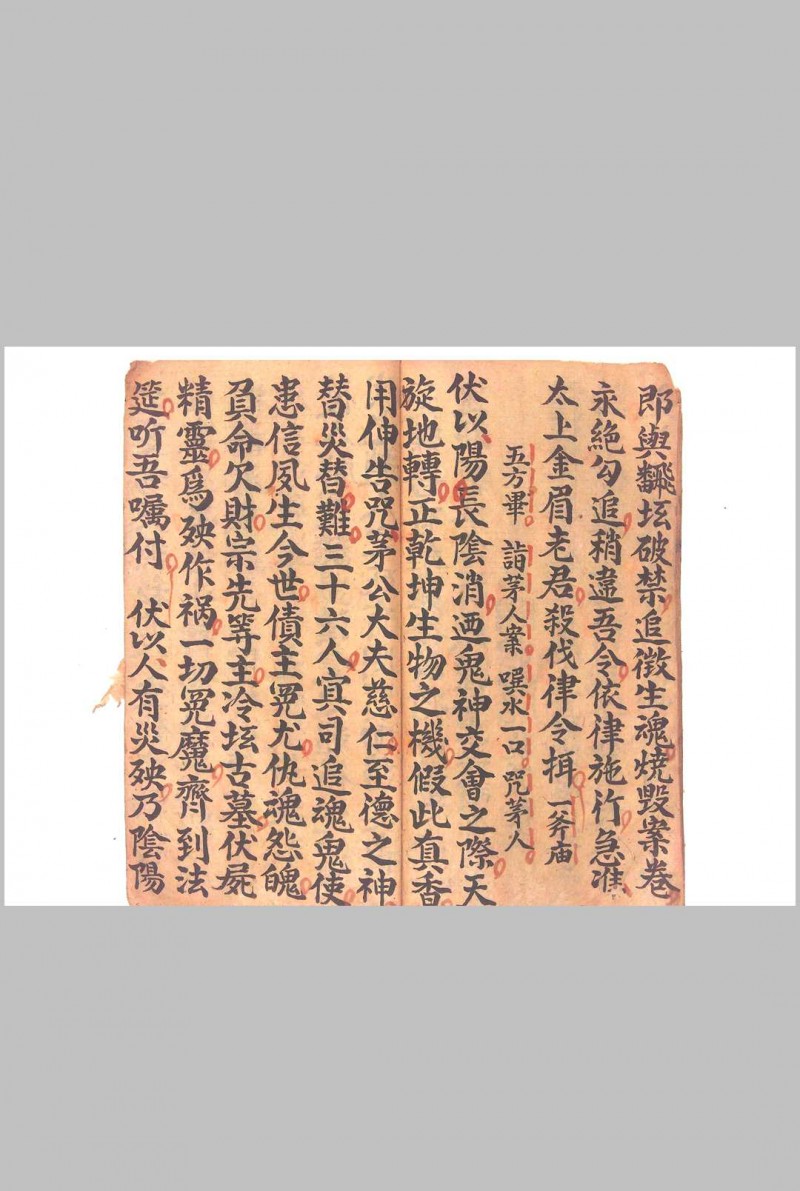 即與飜坛破禁追徵生魂燒毀案卷
永絕勾追稍違吾令依律施行急准
太上金眉老君殺伐律令揖 一斧庙
五方畢 詣茅人案 噀水一口 咒茅人
伏以陽長陰消迺鬼神交會之際天
旋地轉正乾坤生物之機假此真香
用伸告咒茅公大夫慈仁至德之神
替災替難三十六人冥司追魂鬼使
患信夙生今世債主冤尤仇魂怨魄
負命欠財宗先等主冷坛古墓伏屍
精靈爲殃作禍一切冤魔齊到法
筵听吾嘱付 伏以人有災殃乃陰陽